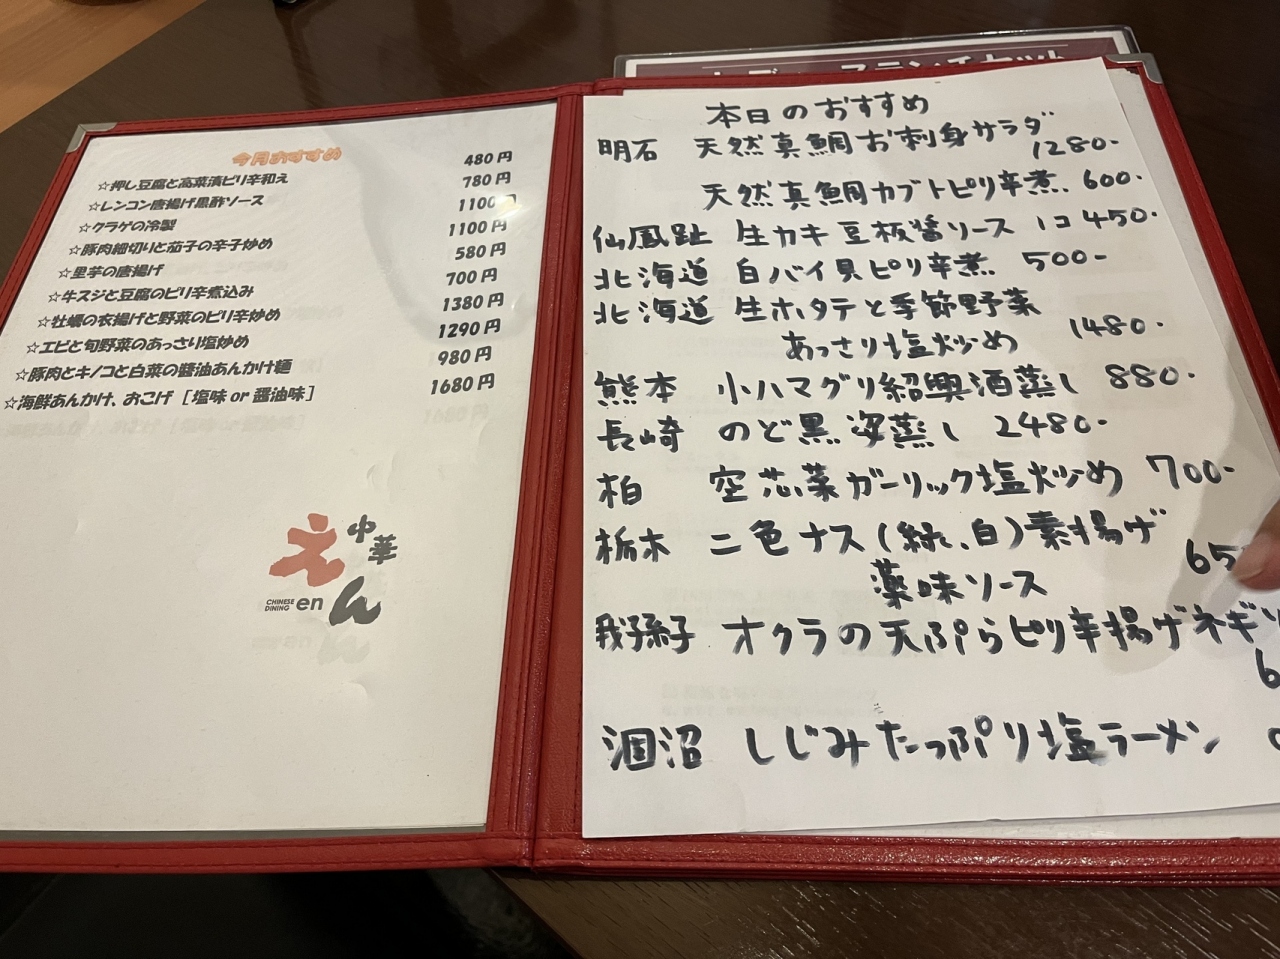 今月おすすめ
☆押し豆腐と高菜漬ピリ辛和え 480円
☆レンコン唐揚げ黒酢ソース 780円
☆クラゲの冷製 1100円
☆豚肉細切りと茄子の辛子炒め 1100円
☆里芋の唐揚げ 580円
☆牛スジと豆腐のピリ辛煮込み 700円
☆牡蠣の衣揚げと野菜のピリ辛炒め 1380円
☆エビと旬野菜のあっさり塩炒め 1290円
☆豚肉とキノコと白菜の醬油あんかけ麺 980円
☆海鮮あんかけ、おこげ [塩味 or 醤油味] 1680円
中華
えん
CHINESE
DINING en
本日のおすすめ
明石 天然真鯛お刺身サラダ
1280-
天然真鯛カブトピリ辛煮. 600-
仙鳳趾 生カキ豆板醤ソース 1コ 450-
北海道 白バイ貝ピリ辛煮. 500-
北海道 生ホタテと季節野菜
あっさり塩炒め 1480-
熊本 小ハマグリ紹興酒蒸し 880-
長崎 のど黒姿蒸し 2480-
柏 空芯菜ガーリック塩炒め 700-
栃木 二色ナス(緑、白)素揚げ
薬味ソース 65
我孫子 オクラの天ぷらピリ辛揚げネギソ
6
涸沼 しじみたっぷり塩ラーメン